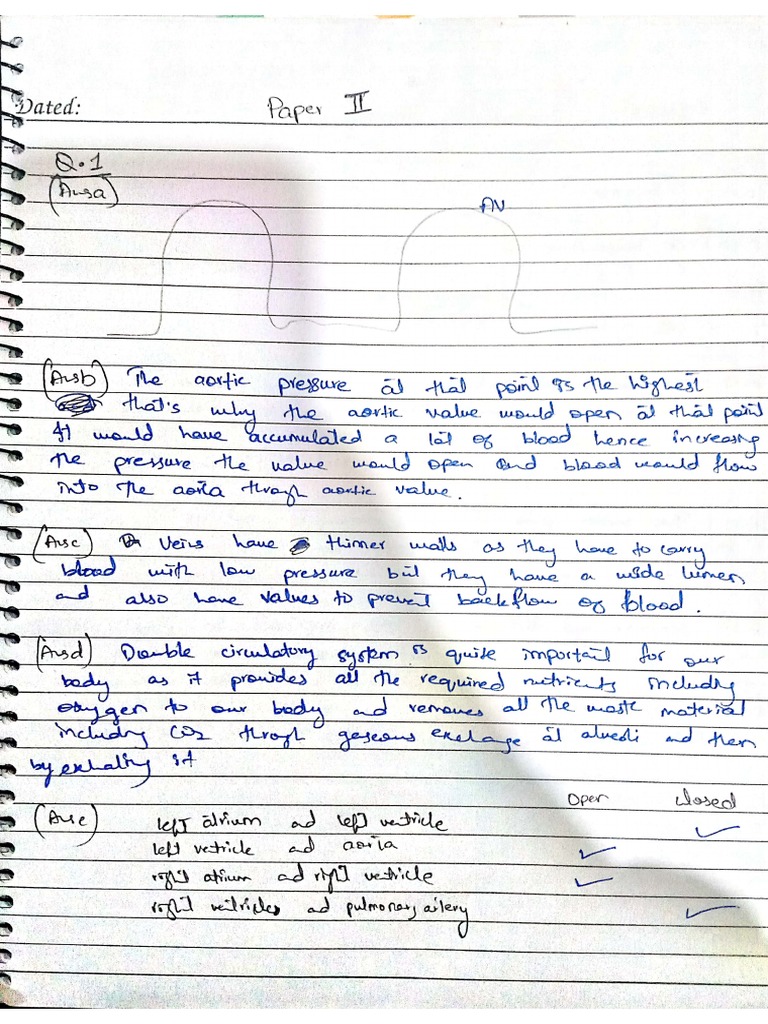 Dated: Paper II
Q.1
(Ans a)
AV
(Ans b) The aortic pressure at that point is the highest
that's why the aortic value would open at that point
It would have accumulated a lot of blood hence increasing
the pressure the value would open and blood would flow
into the aorta through aortic value.
(Ans c) Veins have thinner walls as they have to carry
blood with low pressure but they have a wide lumen
and also have values to prevent backflow of blood.
(Ans d) Double circulatory system is quite important for our
body as it provides all the required nutrients including
oxygen to our body and removes all the waste material
including CO2 through gaseous exchange at alveoli and then
by exhaling it
Open closed
(Ans e) left atrium and left ventricle ✓
left ventricle and aorta ✓
right atrium and right ventricle ✓
right ventricles and pulmonary artery ✓